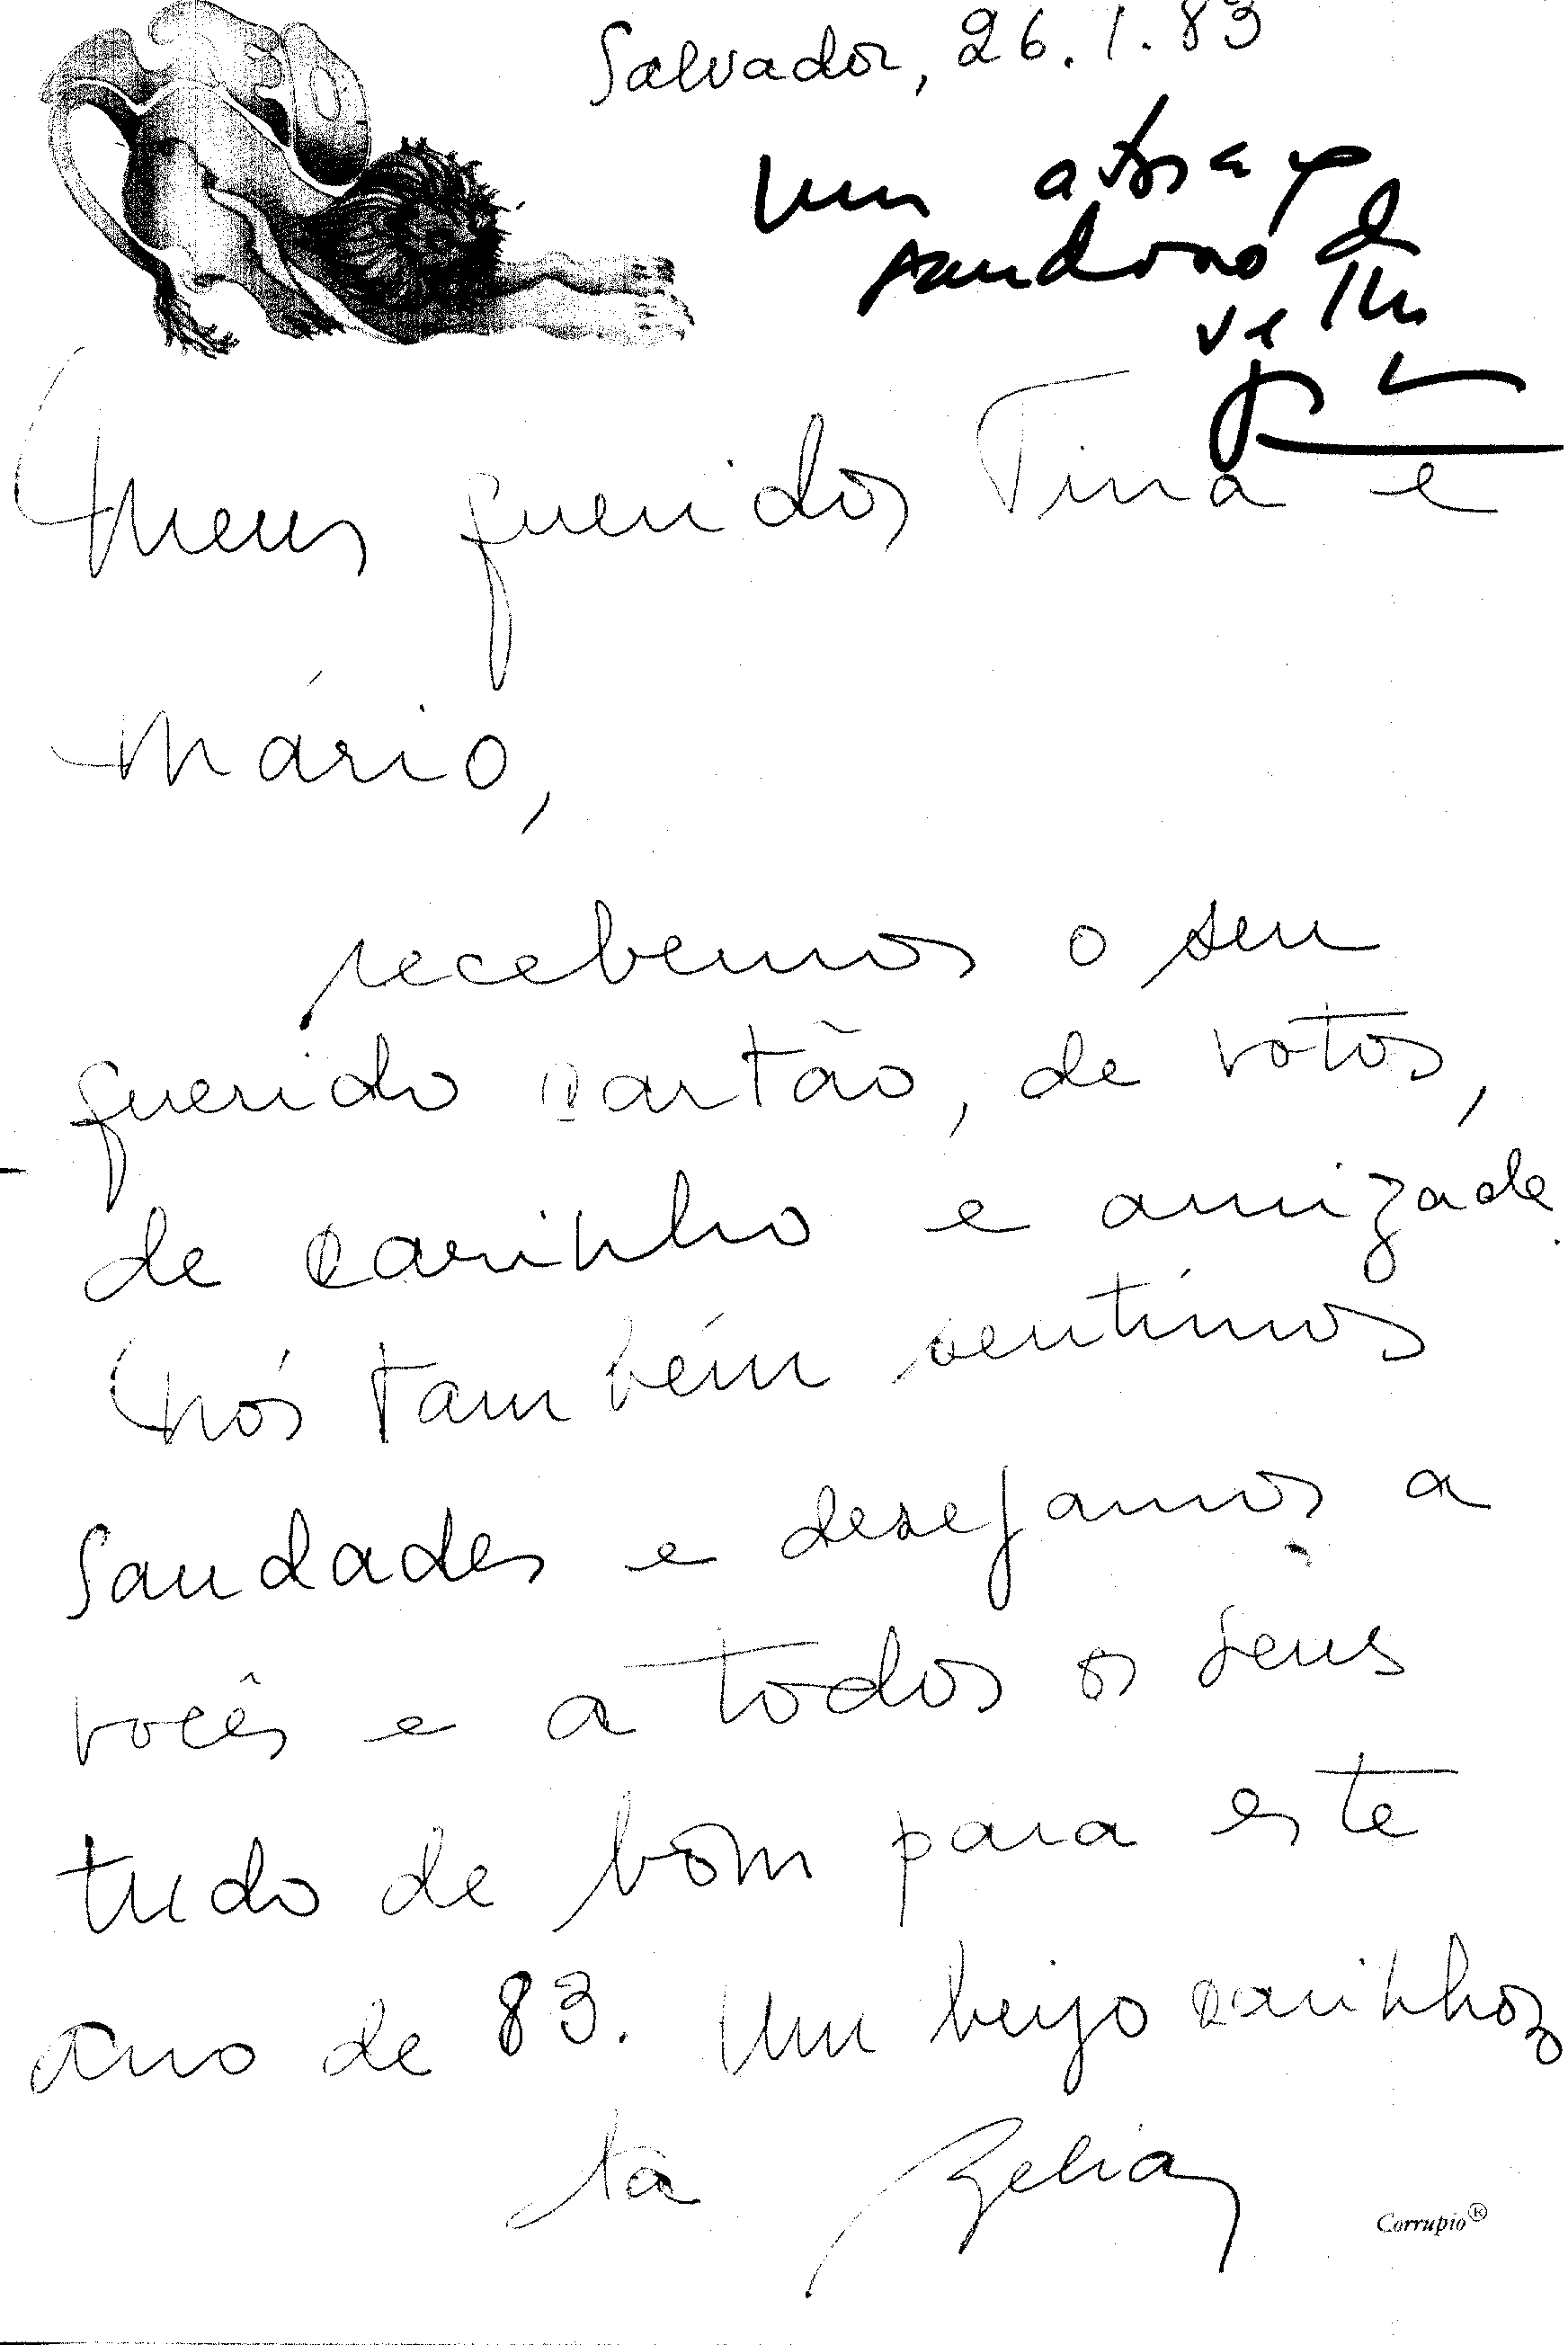 Salvador, 26.1.83
um abraço
saudoso do
velho
Meus queridos Tina e
Mário,
recebemos o seu
querido cartão, de votos,
de carinho e amizade.
Nós também sentimos
saudades e desejamos a
vocês e a todos os seus
tudo de bom para este
ano de 83. Um beijo carinhoso
da Zélia
Corrupio®